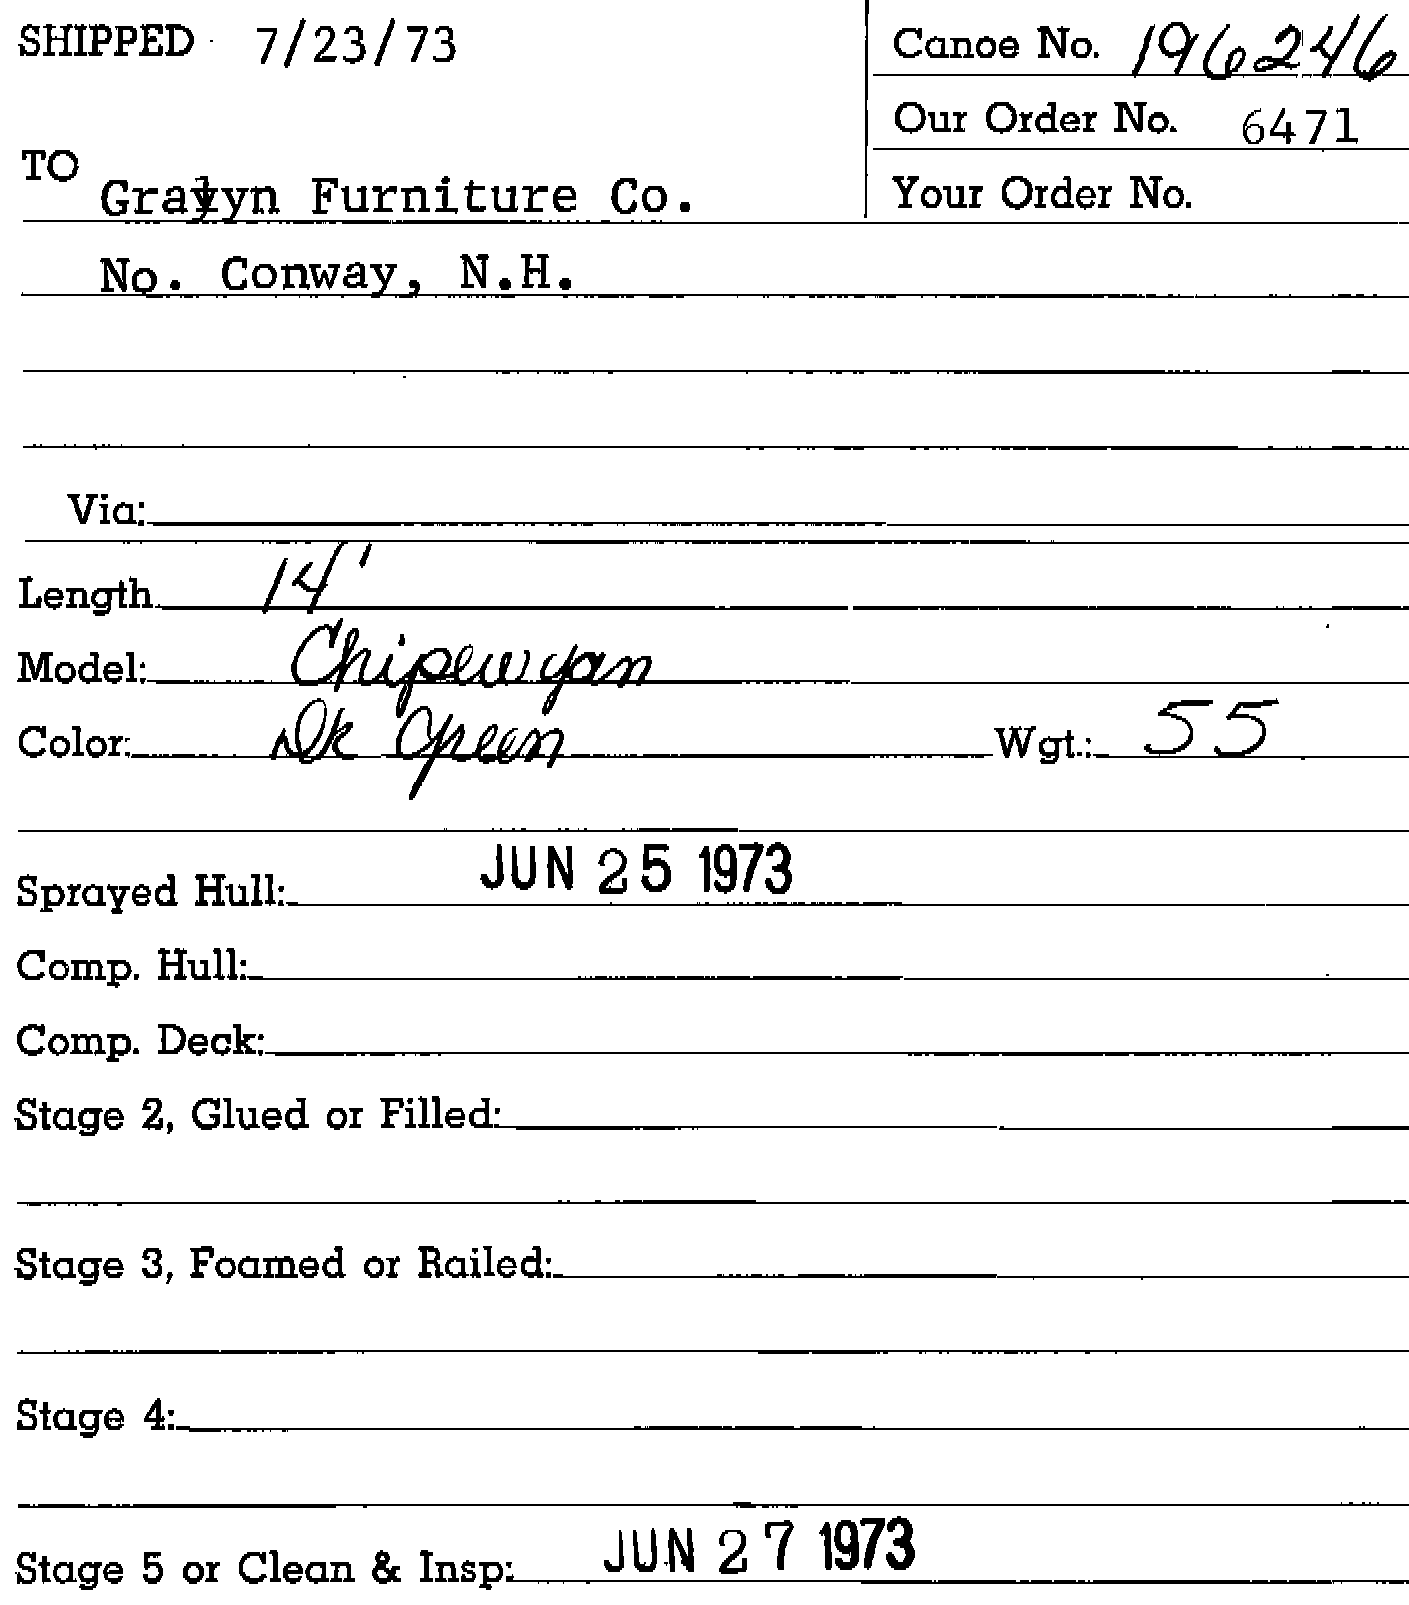 SHIPPED 7/23/73
Canoe No. 196246
Our Order No. 6471
TO Furniture Co.
Your Order No.
No. Conway, N.H.
Via:
Length 14'
Model: Chipewyan
Color: Dk Green Wgt.: 55
Sprayed Hull: JUN 25 1973
Comp. Hull:
Comp. Deck:
Stage 2, Glued or Filled:
Stage 3, Foamed or Railed:
Stage 4:
Stage 5 or Clean & Insp: JUN 27 1973